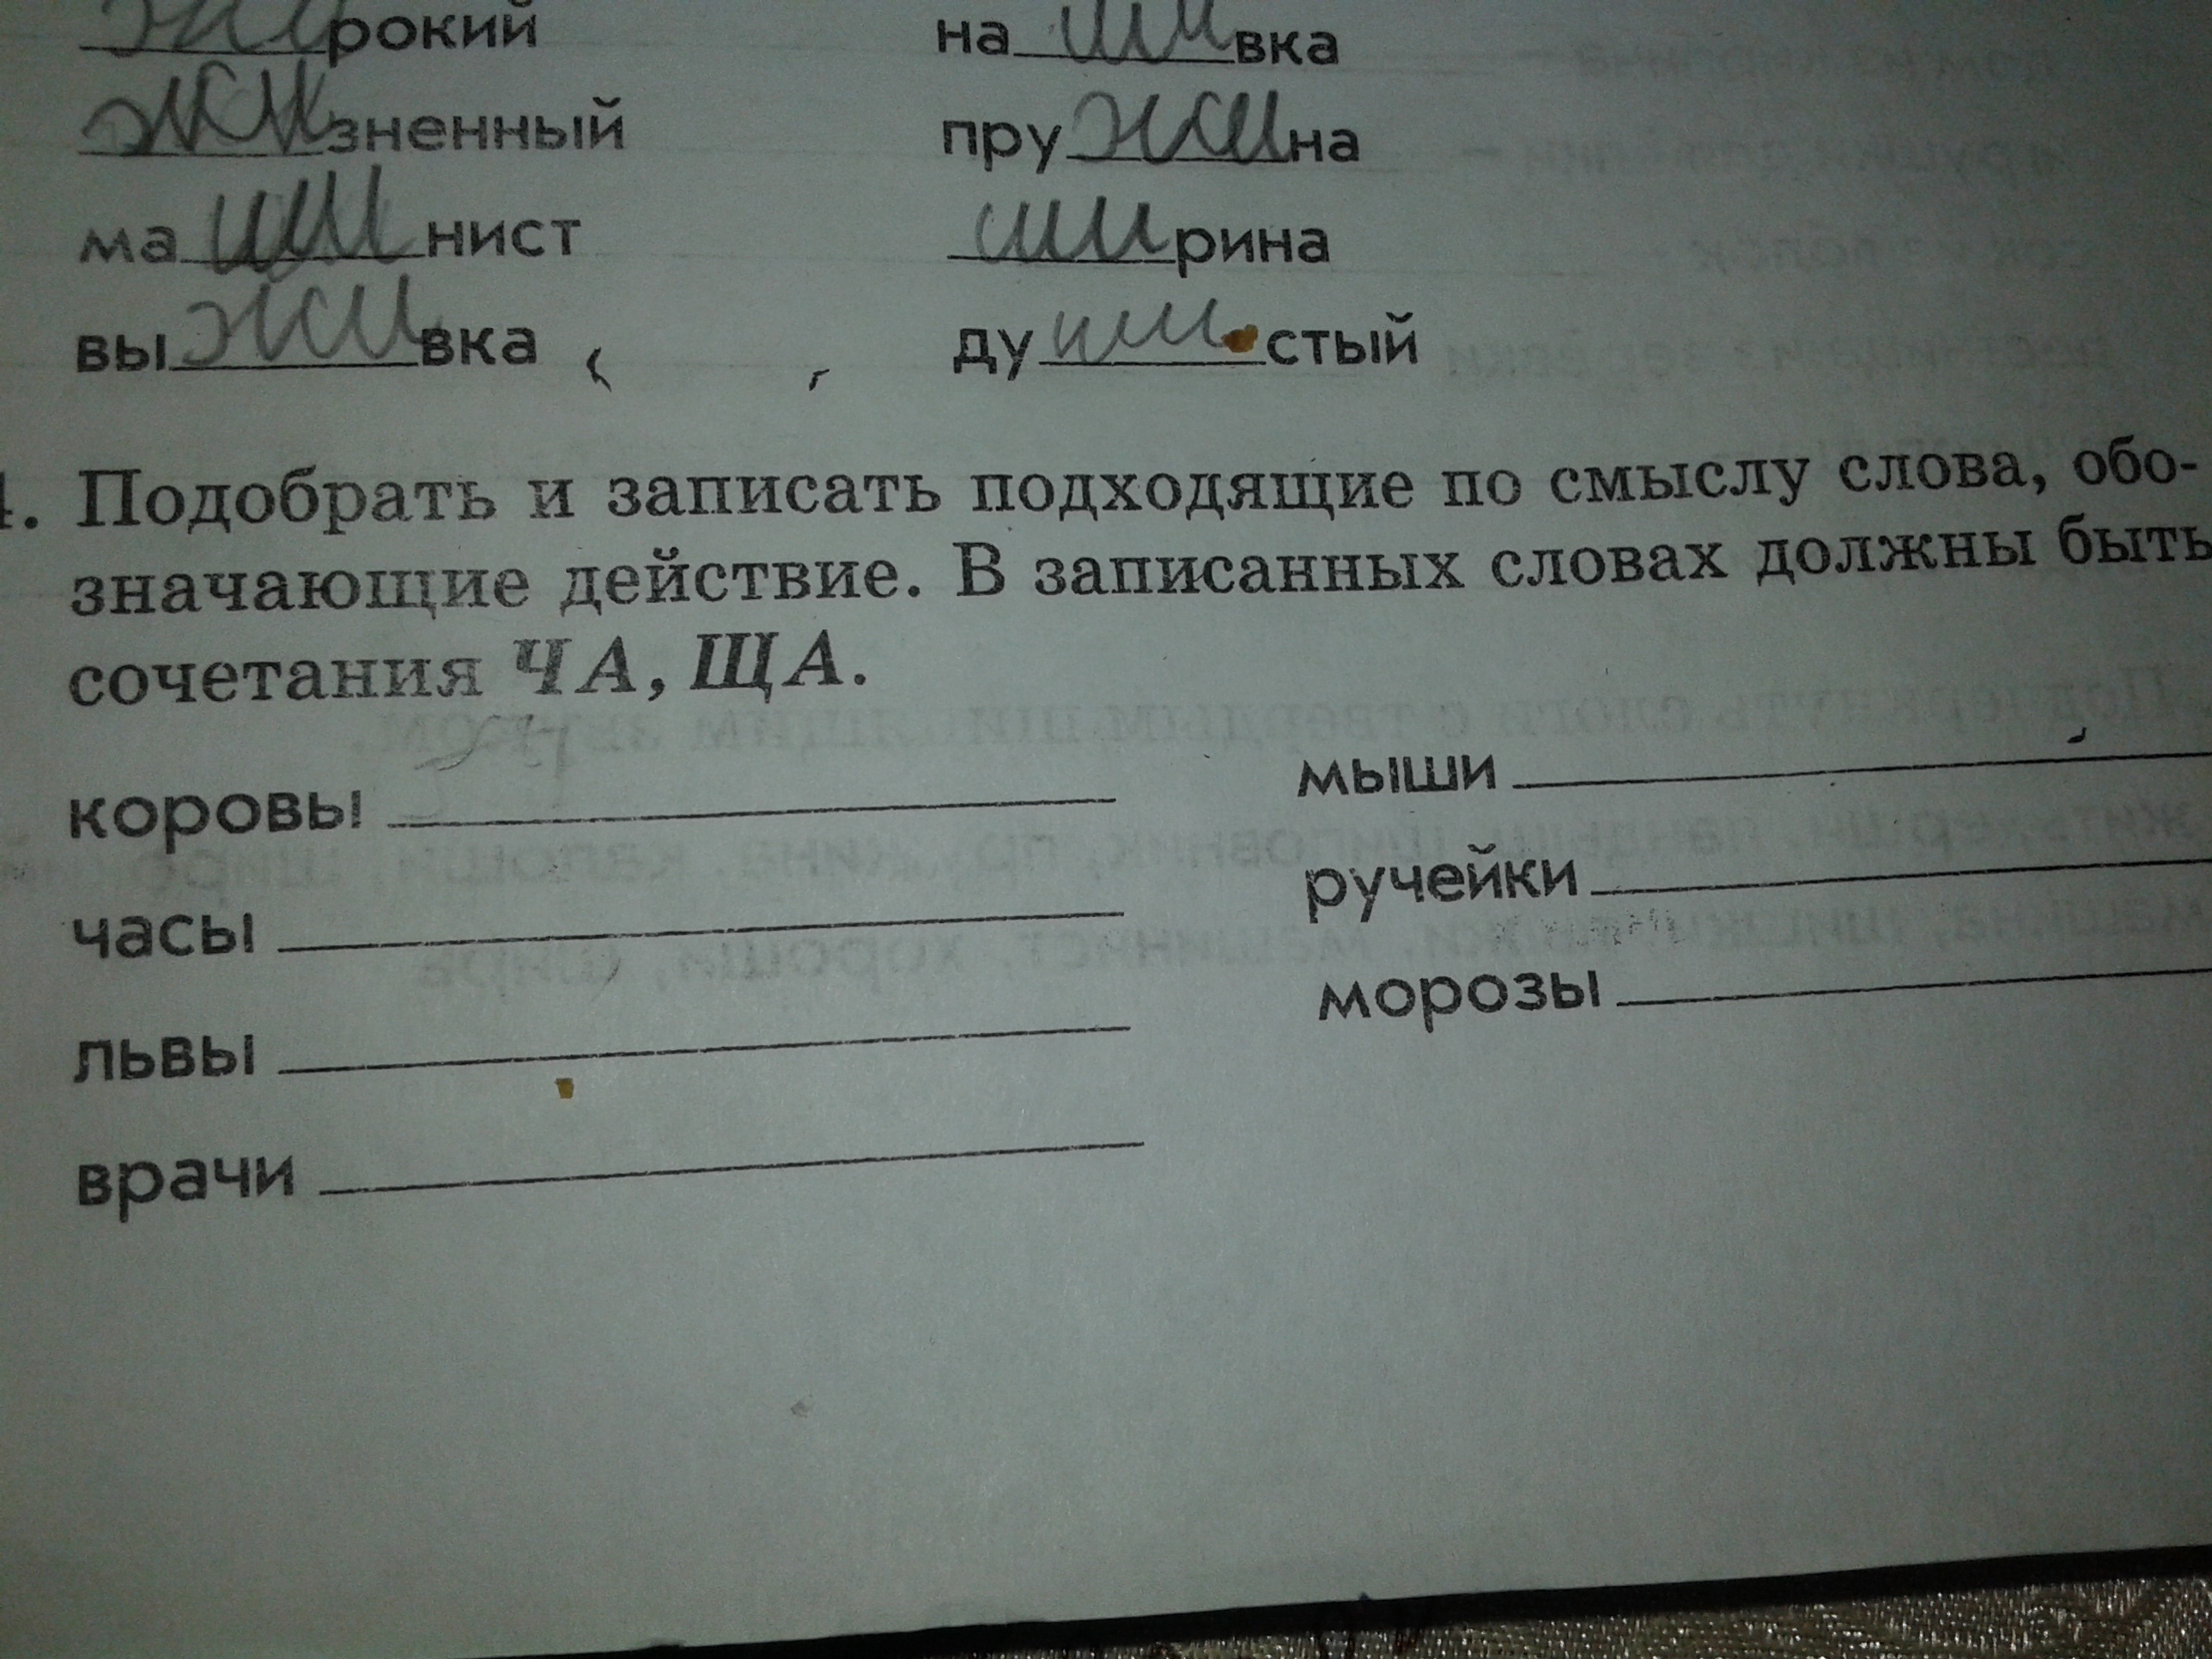 рокий нашивка
жизненный пружина
машинист ширина
выживка душистый
4. Подобрать и записать подходящие по смыслу слова, обо-
значающие действие. В записанных словах должны быть
сочетания ЧА, ЩА.
коровы мыши
часы ручейки
львы морозы
врачи